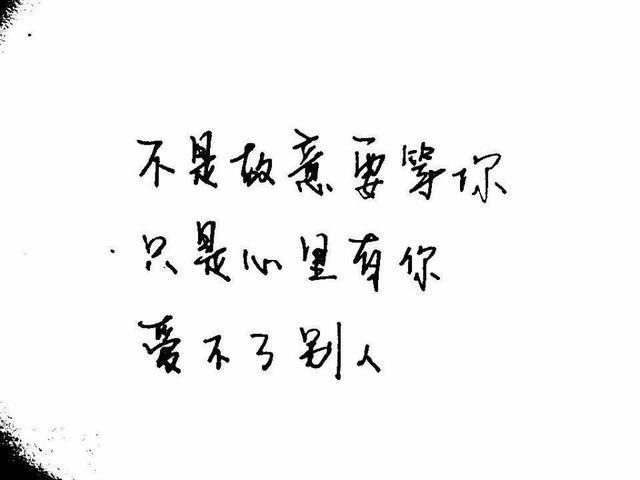 不是故意要等你
只是心里有你
爱不了别人